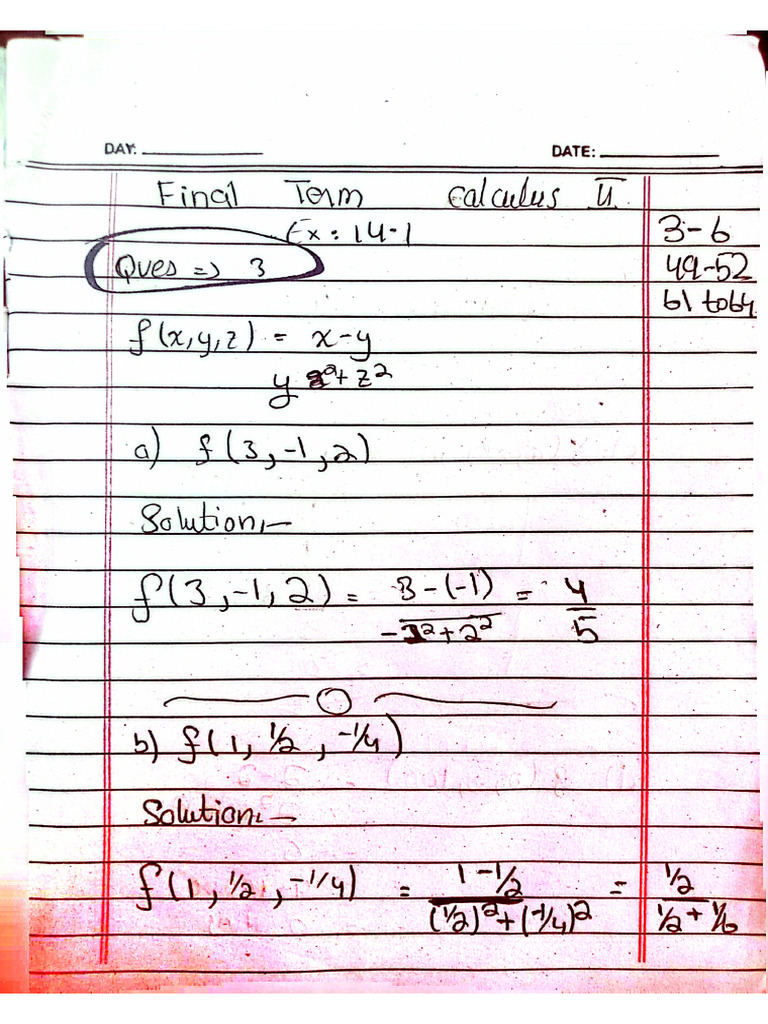 DAY: DATE:
Final Term Calculus II
Ex: 14.1
3-6
Ques => 3
49-52
61 to 64
f(x,y,z) = x-y
y²+z²
a) f(3,-1,2)
Solution:-
f(3,-1,2) = 3-(-1) = 4
-1²+2² 5
b) f(1, 1/2, -1/4)
Solution:-
f(1, 1/2, -1/4) = 1-1/2 = 1/2
(1/2)²+(-1/4)² 1/2+1/6